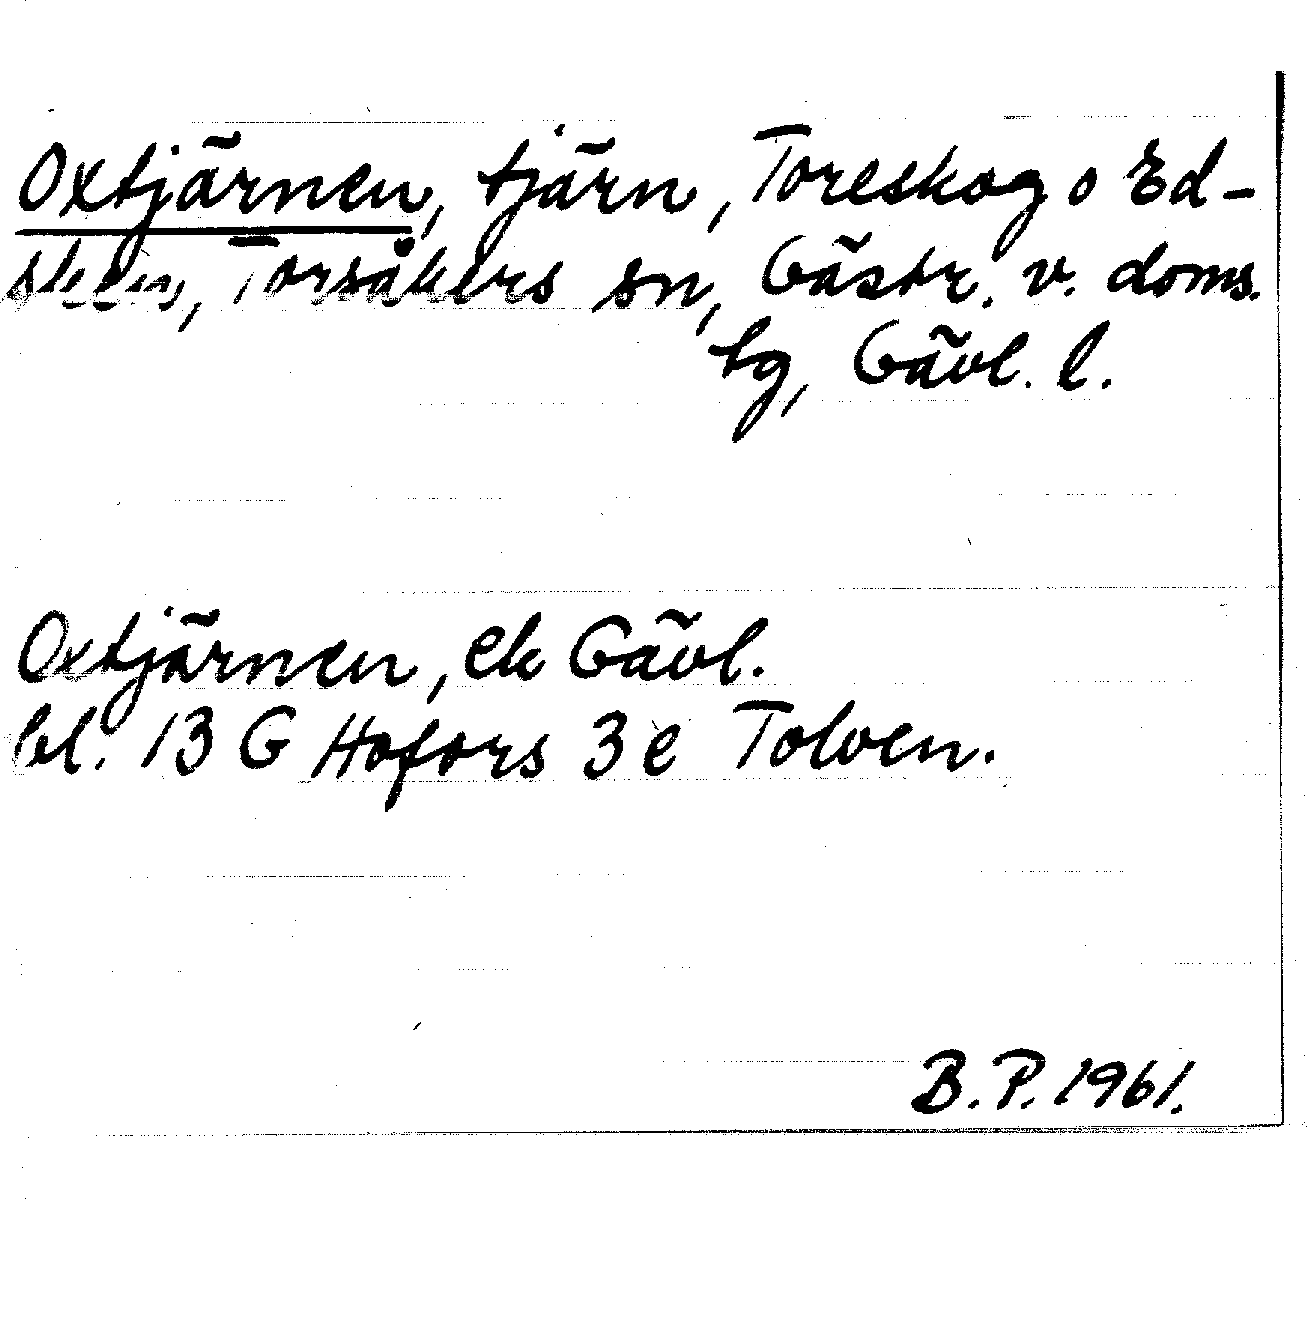 Oxtjärnen, tjärn, Toreskog o Ed-
sken, Torsåkers sn, Gästr. v. doms.
tg, Gävl. l.
Oxtjärnen, ek Gävl.
bl. 13 G Hofors 3 e Tolven.
B. P. 1961.